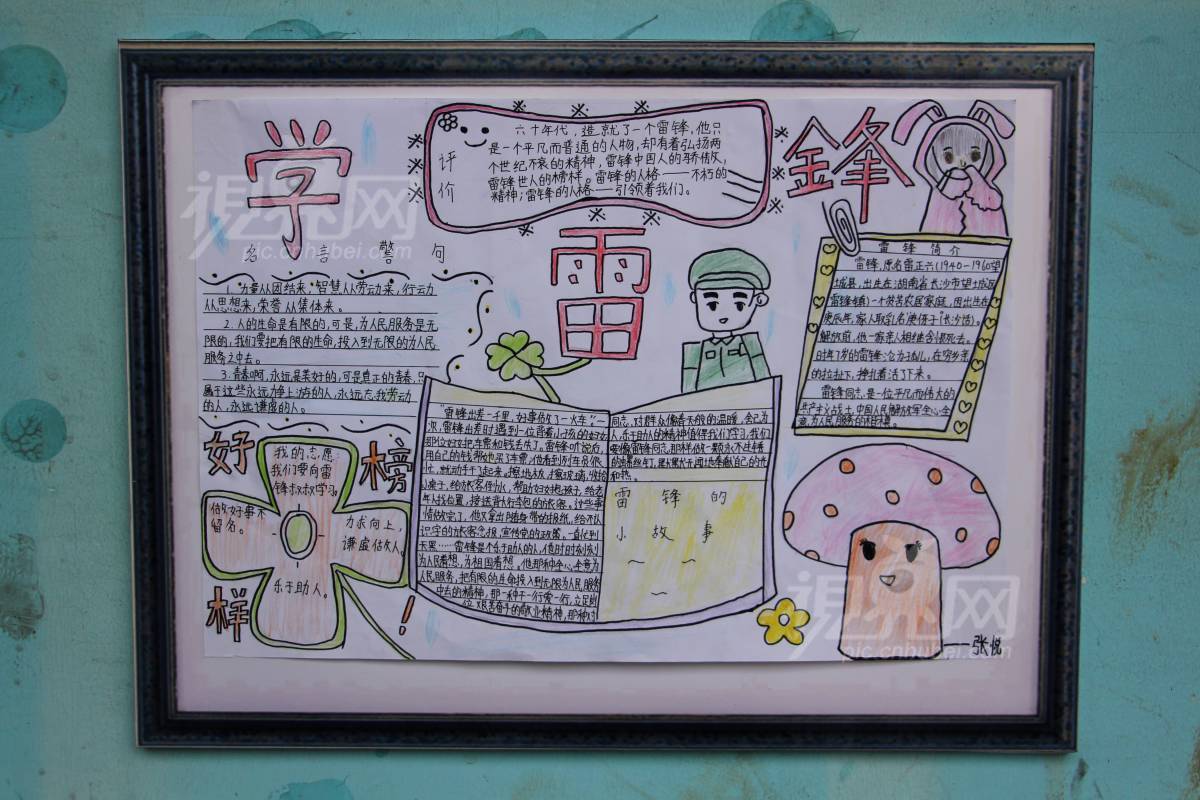 学
雷
鋒
评价
六十年代，造就了一个雷锋，他只
是一个平凡而普通的人物，却有着弘扬两
个世纪不衰的精神，雷锋中国人的骄傲，
雷锋世人的榜样。雷锋的人格——不朽的
精神；雷锋的人格——引领着我们。
名言警句
1.力量从团结来，智慧从劳动来，行动
从思想来，荣誉从集体来。
2.人的生命是有限的，可是，为人民服务是无
限的，我们要把有限的生命，投入到无限的为人民
服务之中去。
3.青春啊，永远是美好的，可是真正的青春，只
属于这些永远力争上游的人，永远忘我劳动
的人，永远谦虚的人。
雷锋简介
雷锋，原名雷正兴(1940-1960望
城县，出生在湖南省长沙市望城区
雷锋镇)一个贫苦农民家庭，因出生在
庚辰年，家人取乳名庚伢子(长沙话)。
解放前，他一家亲人相继含恨死去。
时年7岁的雷锋沦为孤儿，在穷乡亲
的拉扯下，挣扎着活了下来。
雷锋同志，是一位平凡而伟大的
共产主义战士，中国人民解放军全心全
意为人民服务的楷模。
好榜样！
我的志愿：
我们要向雷
锋叔叔学习。
做好事不
留名。
力求向上，
谦虚估人。
乐于助人。
雷锋出差一千里，好事做了一火车，一
次，雷锋出差时遇到一位背着小孩的妇女
那位妇女把车票和钱丢失了。雷锋听说后，
用自己的钱帮她买了车票，他看到列车员很
忙，就动手干了起来。擦地板，擦玻璃，收拾
小桌子，给旅客倒水，帮助妇女抱孩子，给老
年人找位置，接送背大行李包的旅客。这些事
情做完了，他又拿出随身带的报纸，给不认
识字的旅客念报，宣传党的政策，一直忙到
天黑……雷锋是个乐于助人的人，他时时刻刻
为人民着想，为祖国着想。他那种全心全意为
人民服务，把有限的生命投入到无限为人民服务
中去的精神，那一种干一行爱一行，立足岗
位艰苦奋斗的敬业精神，那种对
同志，对群众像春天般的温暖，舍己为
人，乐于助人的精神值得我们学习，我们
要像雷锋同志那样做一颗永不生锈
的螺丝钉，
和热。
雷锋的
小故事
张悦
視界网
pic.cnhubei.com
視界网
pic.cnhubei.com